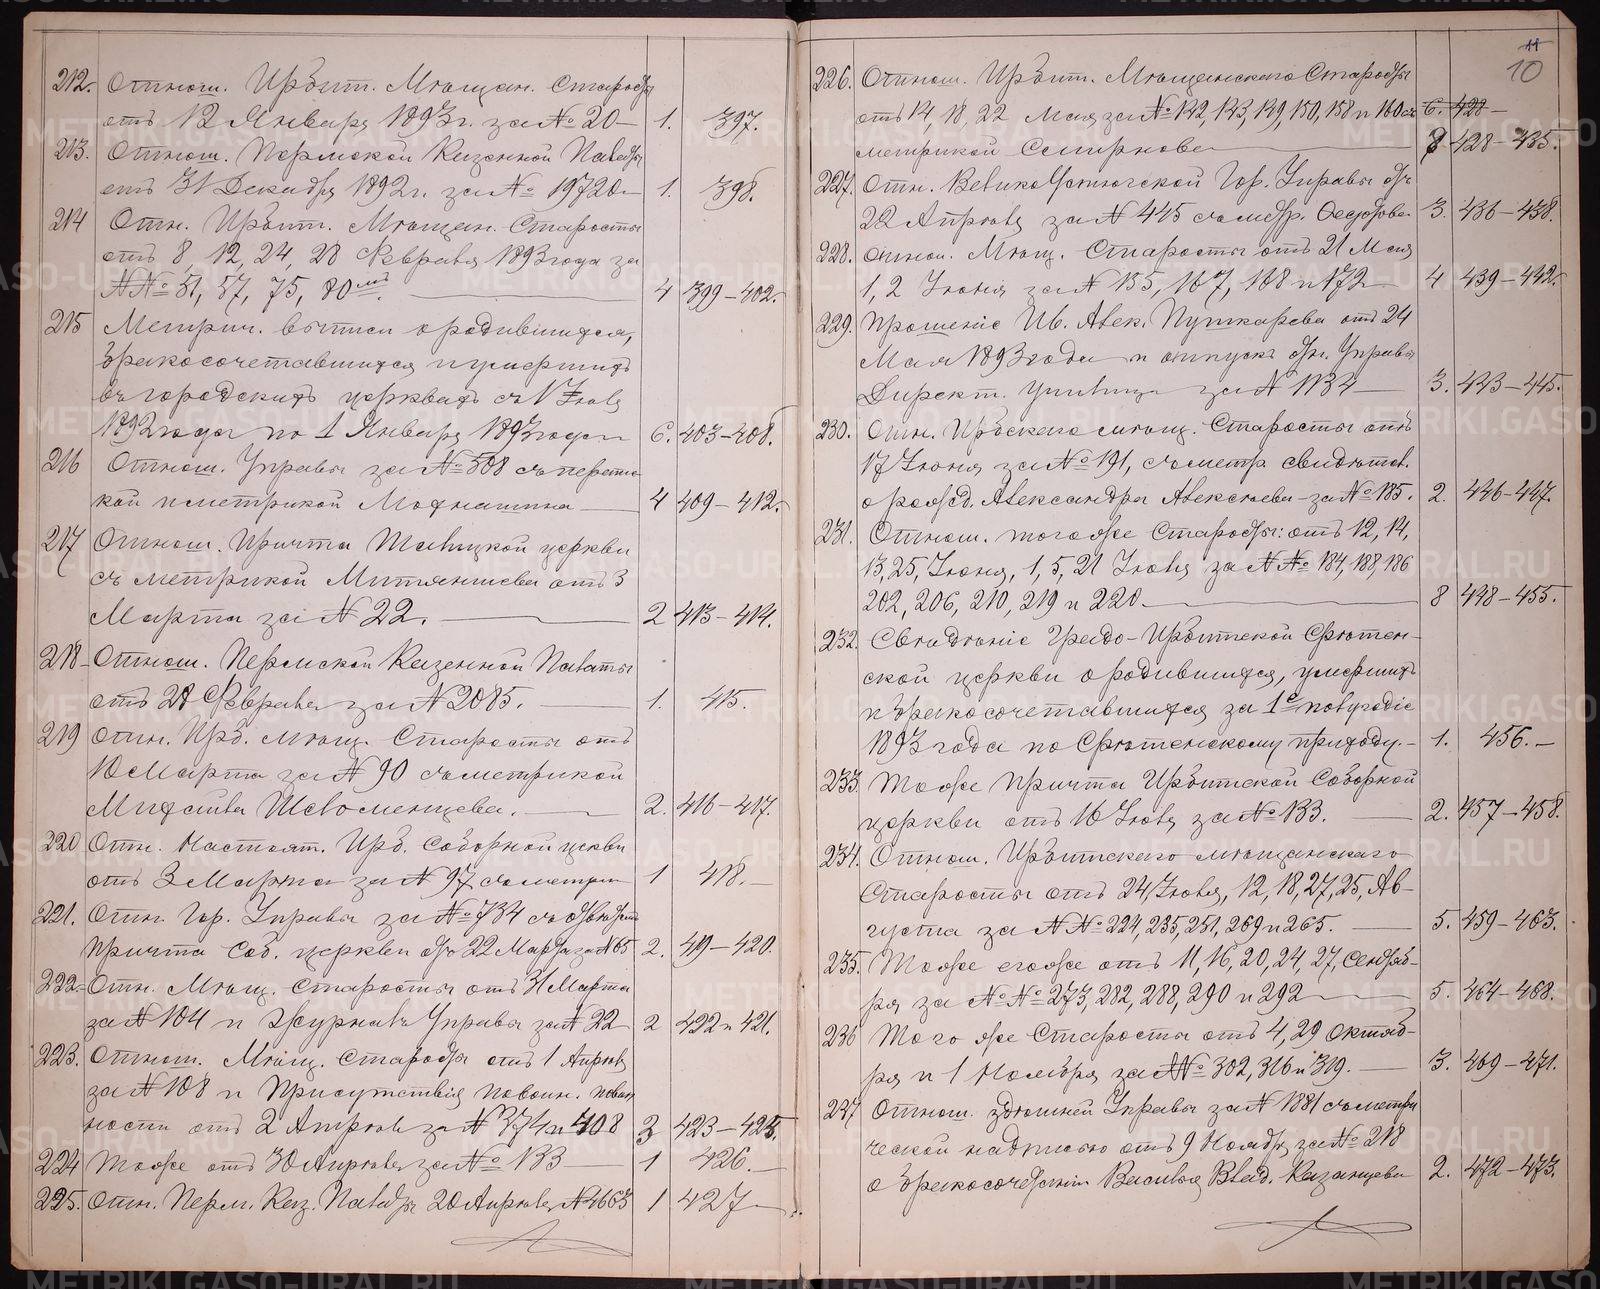 212. Отнош. Ирбит. Мѣщан. Старосты
отъ 12 Января 1893 г. за № 20 — 1. 397.
213. Отнош. Пермской Казенной Палаты
отъ 31 Декабря 1892 г. за № 19720 — 1. 398.
214 Отн. Ирбит. Мѣщан. Старосты
отъ 8, 12, 24, 28 Февраля 1893 года за
№№ 51, 57, 75, 80мъ. — 4 399–402.
215 Метрич. выписи о родившихся,
бракосочетавшихся и умершихъ
въ городскихъ церквахъ съ 1 Іюля
1892 года по 1 Января 1893 года 6. 403–408.
216 Отнош. Управы за № 508 съ перепис
кой и метрикой — 4 409–412.
217 Отнош. Причта Шавицкой церкви
съ метрикой отъ 3
Марта за № 22. — 2 413–414.
218 Отнош. Пермской Казенной Палаты
отъ 28 Февраля за № 2085. — 1. 415.
219 Отн. Ирб. мѣщ. Старосты отъ
10 Марта за № 90 съ метрикой
2. 416–417.
220 Отн. Настоят. Ирб. Соборной церкви
отъ 3 Марта за № 97 съ метрик 1 418. —
221. Отн. Гор. Управы за № 734 съ
Причта Соб. церкви отъ 22 Марта за № 65 2. 419–420.
222. Отн. Мѣщ. Старосты отъ 31 Марта
за № 104 и Журналъ Управы за № 22 2 422 и 421.
223. Отнош. Мѣщ. Старосты отъ 1 Апрѣля
за № 108 и Присутствія по воин. повин
ности отъ 2 Апрѣля за № 374 и 408 3 423–425.
224 Тоже отъ 30 Апрѣля за № 133 — 1 426. —
225. Отн. Перм. Каз. Палаты 20 Апрѣля № 4663 1 427 —
11
10
226. Отнош. Ирбит. Мѣщанскаго Старосты
отъ 14, 18, 22 Мая за № 142, 143, 149, 150, 158 и 160 съ 6. 428 —
метрикой Смирнова — 8 428–435.
227. Отн. Великоустюгской Гор. Управы отъ
22 Апрѣля за № 445 съ метр. Федорова 3. 436–438.
228. Отнош. Мѣщ. Старосты отъ 21 Мая
1, 2 Іюня за № 155, 167, 168 и 172 — 4 439–442.
229. Прошеніе Ив. Алек. Пушкарева отъ 24
Мая 1893 года и отпускъ отн. Управы
Директ. училищъ за № 1134 — 3. 443–445.
230. Отн. Ирбскаго мѣщ. Старосты отъ
17 Іюня за № 191, съ метр. свидѣтел.
о рожд. Александра Алексѣева за № 185. 2. 446–447.
231. Отнош. тогоже Старосты: отъ 12, 14,
13, 25, Іюня, 1, 5, 21 Іюля за №№ 184, 188, 186
202, 206, 210, 219 и 220. — 8 448–455.
232. Свѣдѣніе Градо-Ирбитской Срѣтен-
ской церкви о родившихся, умершихъ
и бракосочетавшихся за 1е полугодіе
1893 года по Срѣтенскому приходу. — 1. 456. —
233. Тоже Причта Ирбитской Соборной
церкви отъ 16 Іюля за № 133. — 2. 457–458.
234. Отнош. Ирбитскаго мѣщанскаго
Старосты отъ 24, Іюля, 12, 18, 27, 25, Ав-
густа за №№ 224, 235, 251, 269 и 265. — 5. 459–463.
235. Тоже егоже отъ 11, 16, 20, 24, 27, Сентяб-
ря за №№ 273, 282, 288, 290 и 292 — 5. 464–468.
236 Того же Старосты отъ 4, 29 Октяб-
ря и 1 Ноября за №№ 302, 316 и 319. — 3. 469–471.
237 Отнош. здѣшней Управы за № 1881 съ метри
ческой надписью отъ 9 Нояб. за № 218
о бракосочетаніи Василья Влад. Казанцева 2. 472–473.